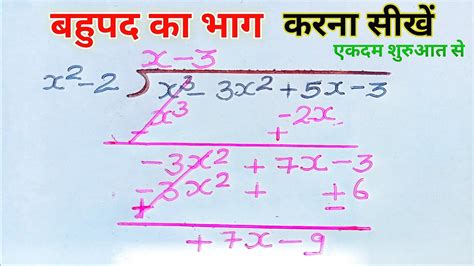 बहुपद का भाग करना सीखें
एकदम शुरुआत से
x - 3
x² - 2 ) x³ - 3x² + 5x - 3
x³ - 2x
- +
- 3x² + 7x - 3
- 3x² + + 6
+ -
+ 7x - 9